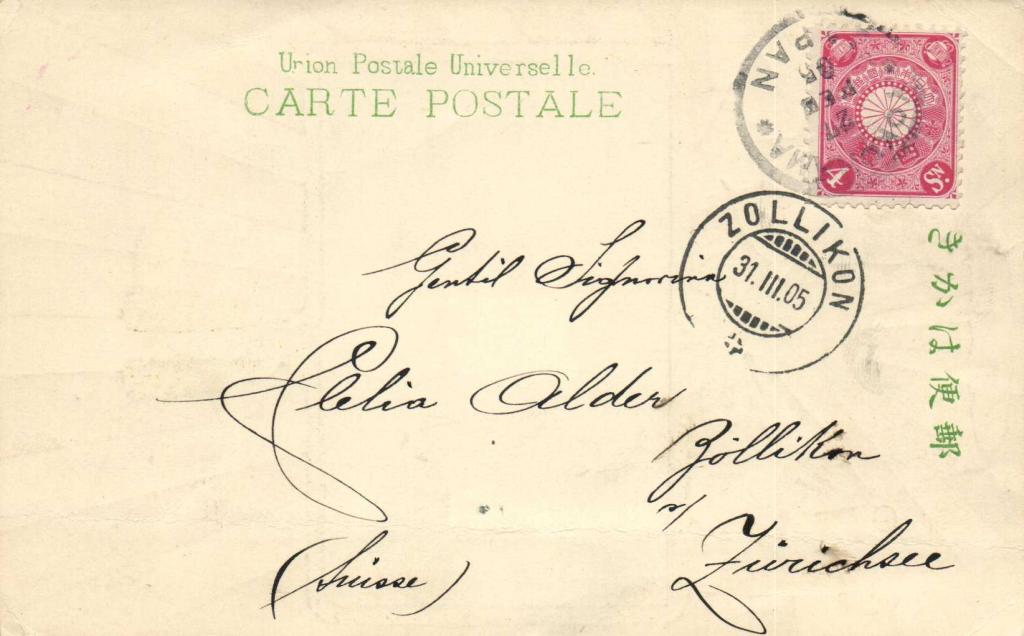 Union Postale Universelle.
CARTE POSTALE
JAPAN
27
FEB
05
4
Sn.
ZOLLIKON
31.III.05
きかは便郵
Gentil Signorina
Clelia Alder
Zöllikon
s/ Zürichsee
(Suisse)